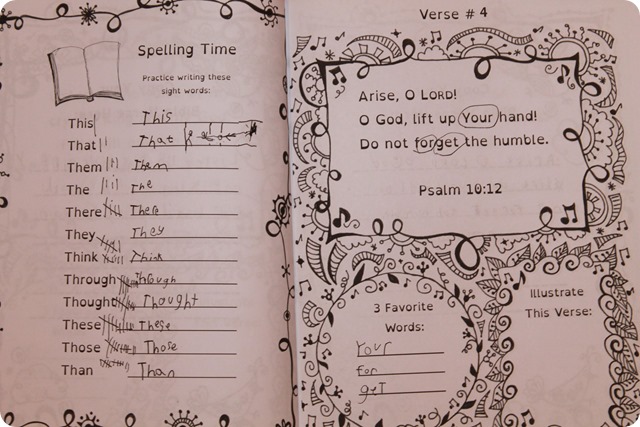 Spelling Time
Practice writing these
sight words:
This This
That That
Them Them
The The
There There
They They
Think Think
Through Through
Thought Thought
These These
Those Those
Than Than
Verse # 4
Arise, O LORD!
O God, lift up Your hand!
Do not forget the humble.
Psalm 10:12
3 Favorite
Words:
Your
for
get
Illustrate
This Verse: